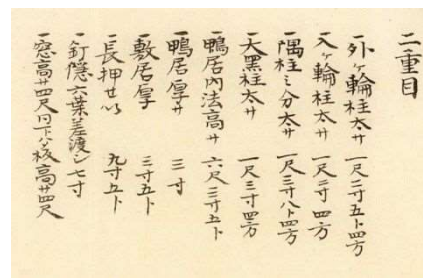 二重目
一外ヶ輪柱太サ 一尺二寸五卜四方
一入ヶ輪柱太サ 一尺二寸四方
一隅柱三分太サ 一尺三寸八卜四方
一大黒柱太サ 一尺三寸四方
一鴨居内法高サ 六尺三寸五卜
一鴨居厚サ 三寸
一敷居厚 三寸五卜
一長押セい 九寸五卜
一釘隠六葉差渡シ 七寸
一窓高サ四尺 下ハ板高サ四尺